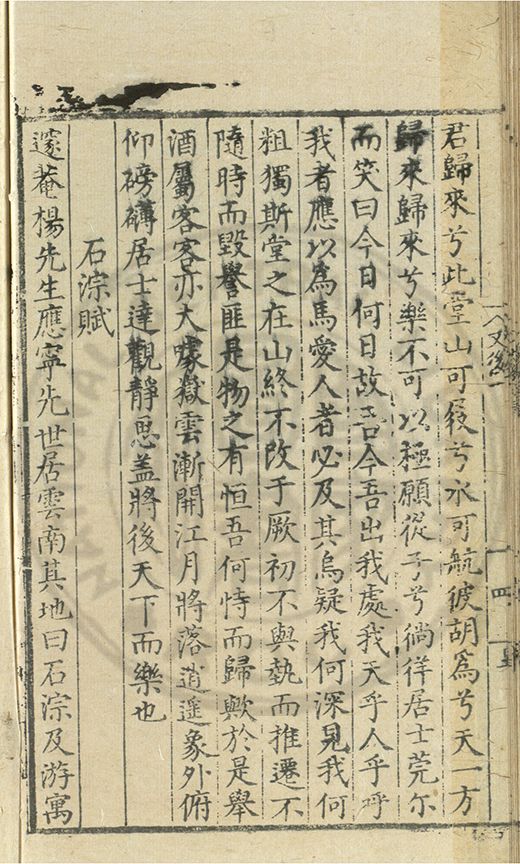 君歸來兮此堂山可屐兮水可航彼胡爲兮天一方
歸來歸來兮樂不可以極願從子兮徜徉居士莞尔
而笑曰今日何日故吾今吾出我處我天乎人乎呼
我者應以爲馬愛人者必及其烏疑我何深見我何
粗獨斯堂之在山終不改于厥初不與執而推遷不
隨時而毀譽匪是物之有恒吾何恃而歸歟於是舉
酒屬客客亦大噱嶽雲漸開江月將落逍遥象外俯
仰磅礴居士達觀靜思盖將後天下而樂也
石淙賦
邃菴楊先生應寧先世居雲南其地曰石淙及游寓